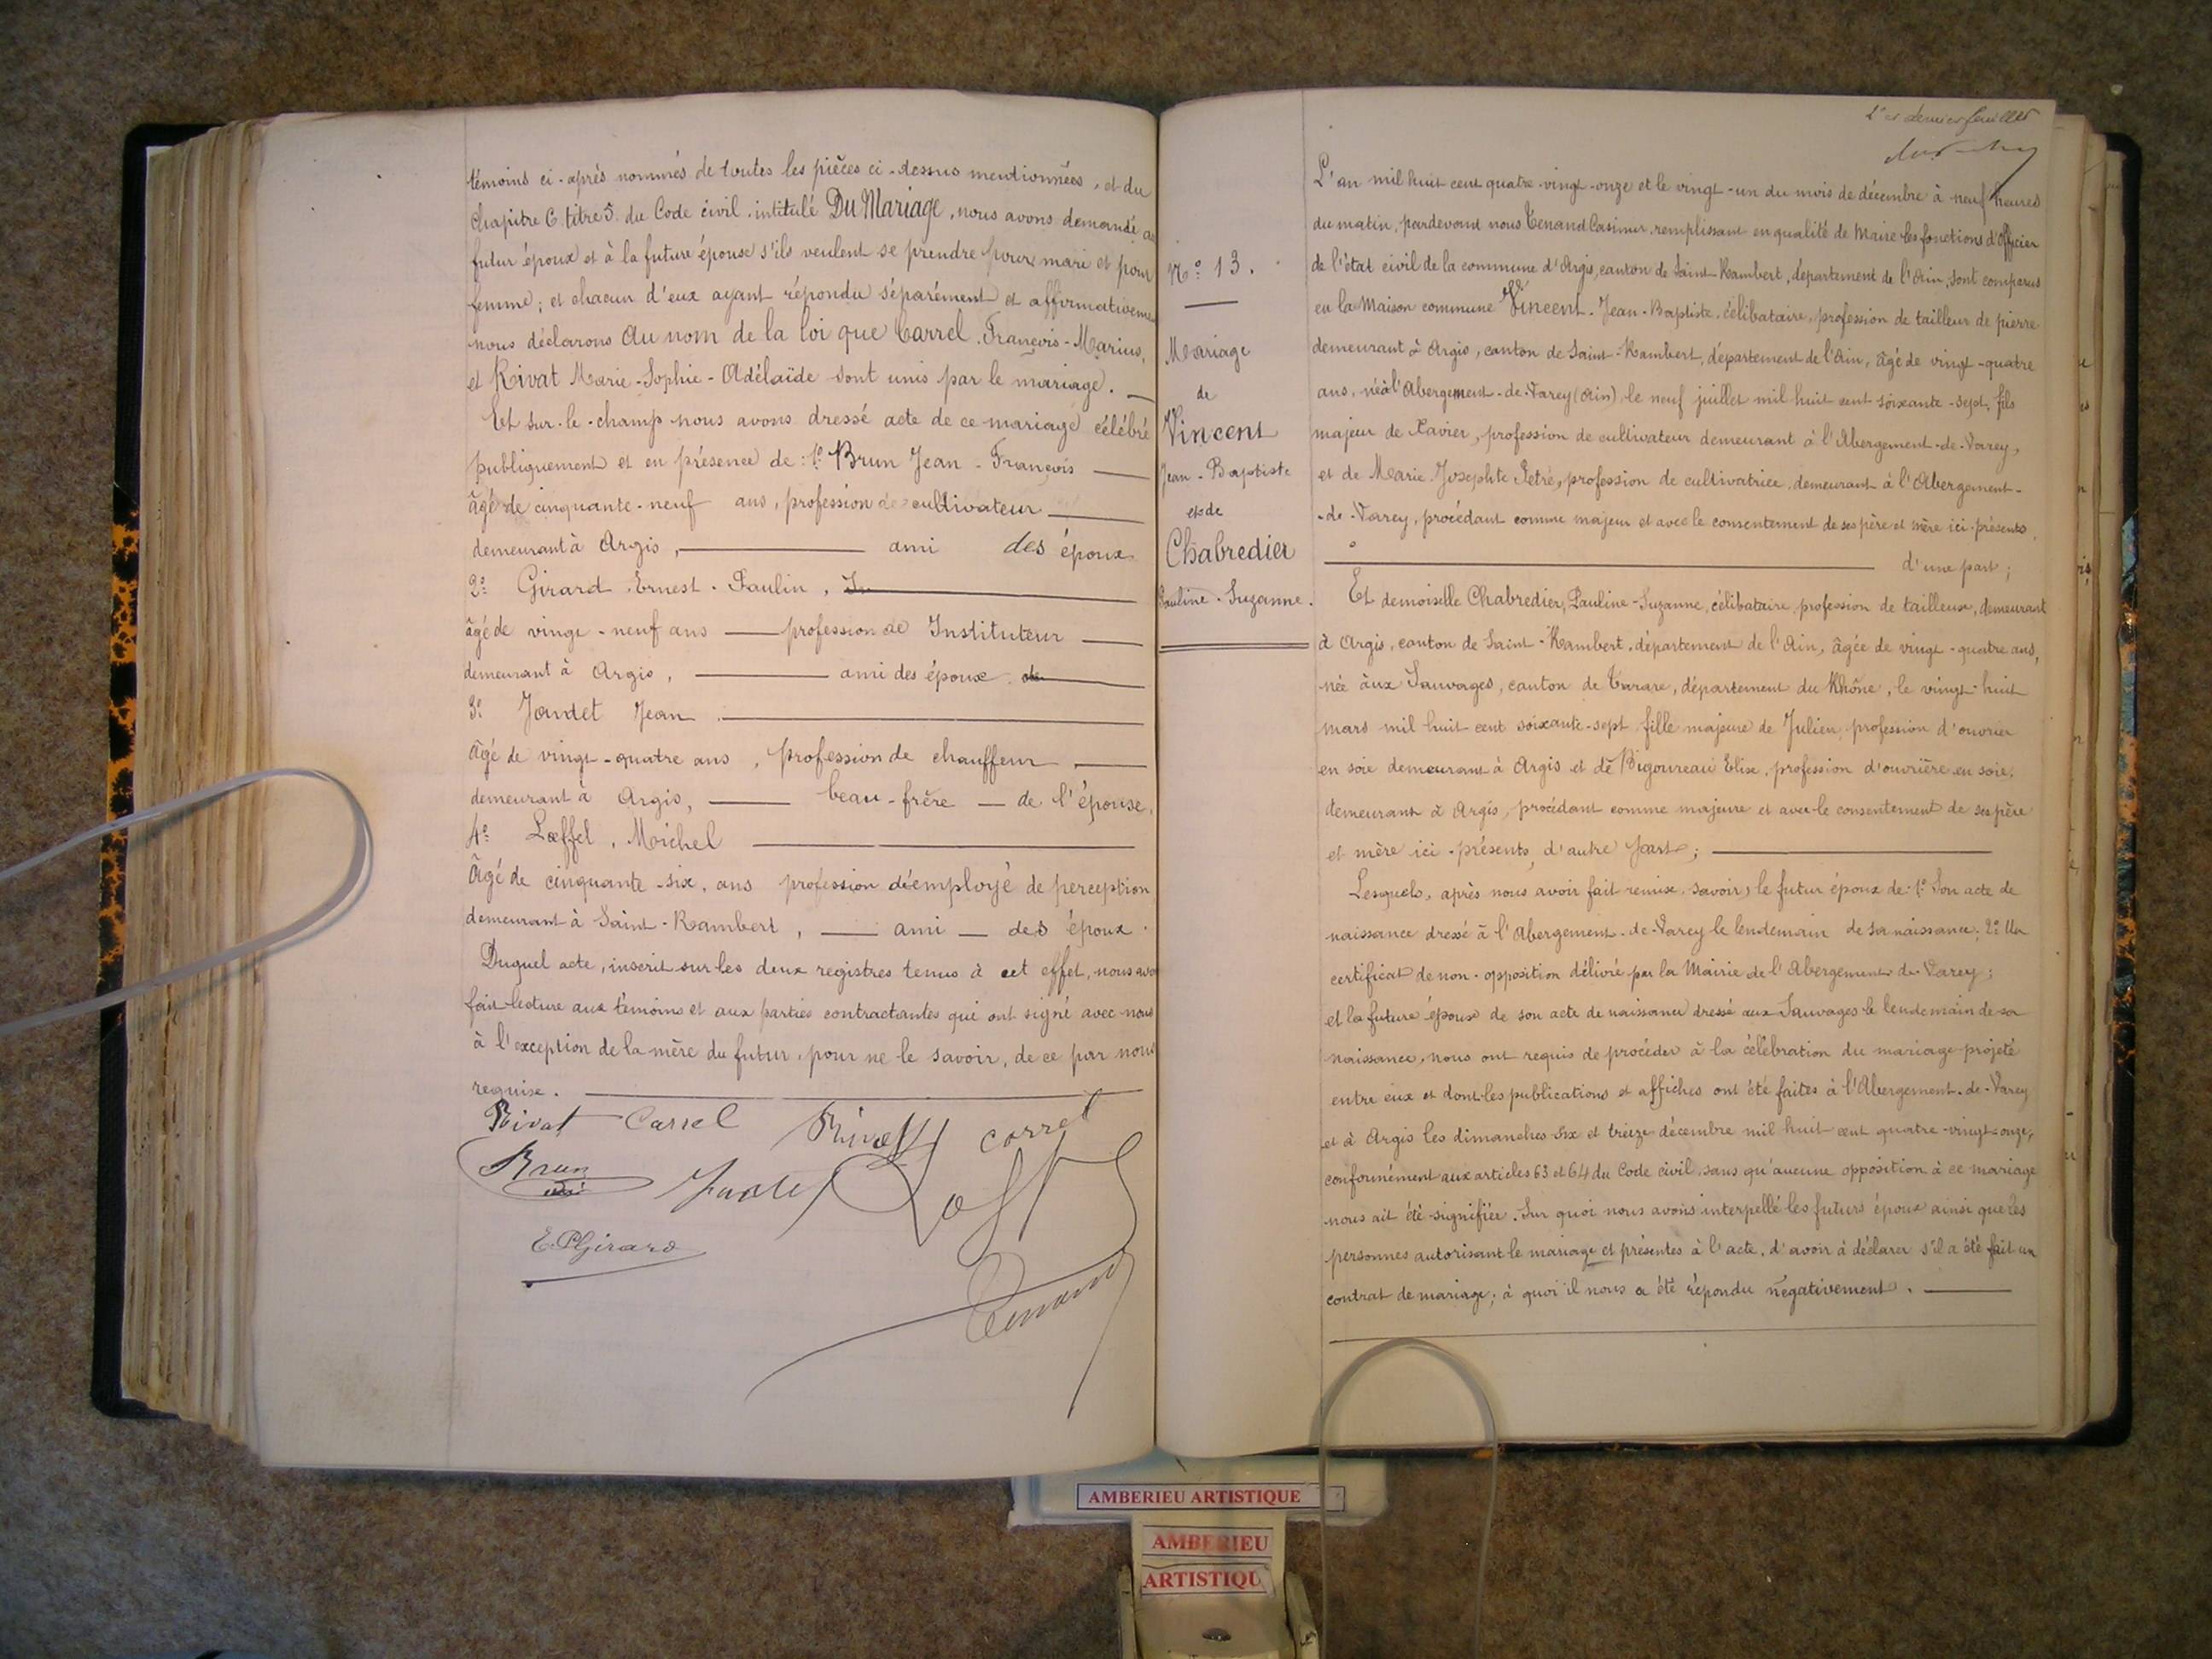 témoins ci-après nommés de toutes les pièces ci-dessus mentionnées, et du
chapitre 6 titre 5 du Code civil, intitulé Du Mariage, nous avons demandé au
futur époux et à la future épouse s'ils veulent se prendre pour mari et pour
femme; et chacun d'eux ayant répondu séparément et affirmativeme
nous déclarons au nom de la loi que Carrel François-Marius,
et Rivat Marie-Sophie-Adélaïde sont unis par le mariage.
Et sur-le-champ nous avons dressé acte de ce mariage célébré
publiquement et en présence de: 1º Brun Jean-François
âgé de cinquante-neuf ans, profession de cultivateur
demeurant à Argis, ami des époux
2º Girard Ernest-Paulin,
âgé de vingt-neuf ans profession de Instituteur
demeurant à Argis, ami des époux
3º Jandet Jean
âgé de vingt-quatre ans, profession de chauffeur
demeurant à Argis, beau-frère de l'épouse,
4º Lœffel, Michel
âgé de cinquante-six, ans profession d'employé de perception
demeurant à Saint-Rambert, ami des époux.
Duquel acte, inscrit sur les deux registres tenus à cet effet, nous avo
fait lecture aux témoins et aux parties contractantes qui ont signé avec nous
à l'exception de la mère du futur, pour ne le savoir, de ce par nous
requise.
Rivat Carrel Rivat carrel
Brun
E.P Girard
Tenand
2e et dernier feuillet
Nº 13.
Mariage
de
Vincent
Jean-Baptiste
et de
Chabredier
Pauline-Suzanne.
L'an mil huit cent quatre-vingt-onze et le vingt-un du mois de décembre à neuf heures
du matin, pardevant nous Tenand Casimir, remplissant en qualité de Maire les fonctions d'Officier
de l'état civil de la commune d'Argis, canton de Saint-Rambert, département de l'Ain, sont comparus
en la Maison commune Vincent Jean-Baptiste, célibataire, profession de tailleur de pierre
demeurant à Argis, canton de Saint-Rambert, département de l'Ain, âgé de vingt-quatre
ans, né à l'Abergement-de-Varey (Ain), le neuf juillet mil huit cent soixante-sept, fils
majeur de Xavier, profession de cultivateur demeurant à l'Abergement-de-Varey,
et de Marie Josephte Pétré, profession de cultivatrice, demeurant à l'Abergement-
-de-Varey, procédant comme majeur et avec le consentement de ses père et mère ici-présents,
d'une part;
Et demoiselle Chabredier, Pauline-Suzanne, célibataire, profession de tailleuse, demeurant
à Argis, canton de Saint-Rambert, département de l'Ain, âgée de vingt-quatre ans,
née aux Sauvages, canton de Tarare, département du Rhône, le vingt-huit
mars mil huit cent soixante-sept fille majeure de Julien, profession d'ouvrier
en soie demeurant à Argis et de Bigoureau Elise, profession d'ouvrière en soie,
demeurant à Argis, procédant comme majeure et avec le consentement de ses père
et mère ici-présents, d'autre part;
Lesquels, après nous avoir fait remise, savoir, le futur époux de: 1º Son acte de
naissance dressé à l'Abergement-de-Varey le lendemain de sa naissance; 2º Un
certificat de non-opposition délivré par la Mairie de l'Abergement-de-Varey;
et la future épouse de son acte de naissance dressé aux Sauvages le lendemain de sa
naissance, nous ont requis de procéder à la célébration du mariage projeté
entre eux et dont les publications et affiches ont été faites à l'Abergement-de-Varey
et à Argis les dimanches six et treize décembre mil huit cent quatre-vingt-onze,
conformément aux articles 63 et 64 du Code civil, sans qu'aucune opposition à ce mariage
nous ait été signifiée. Sur quoi nous avons interpellé les futurs époux ainsi que les
personnes autorisant le mariage et présentes à l'acte, d'avoir à déclarer s'il a été fait un
contrat de mariage; à quoi il nous a été répondu négativement.
AMBERIEU ARTISTIQUE
AMBERIEU
ARTISTIQU